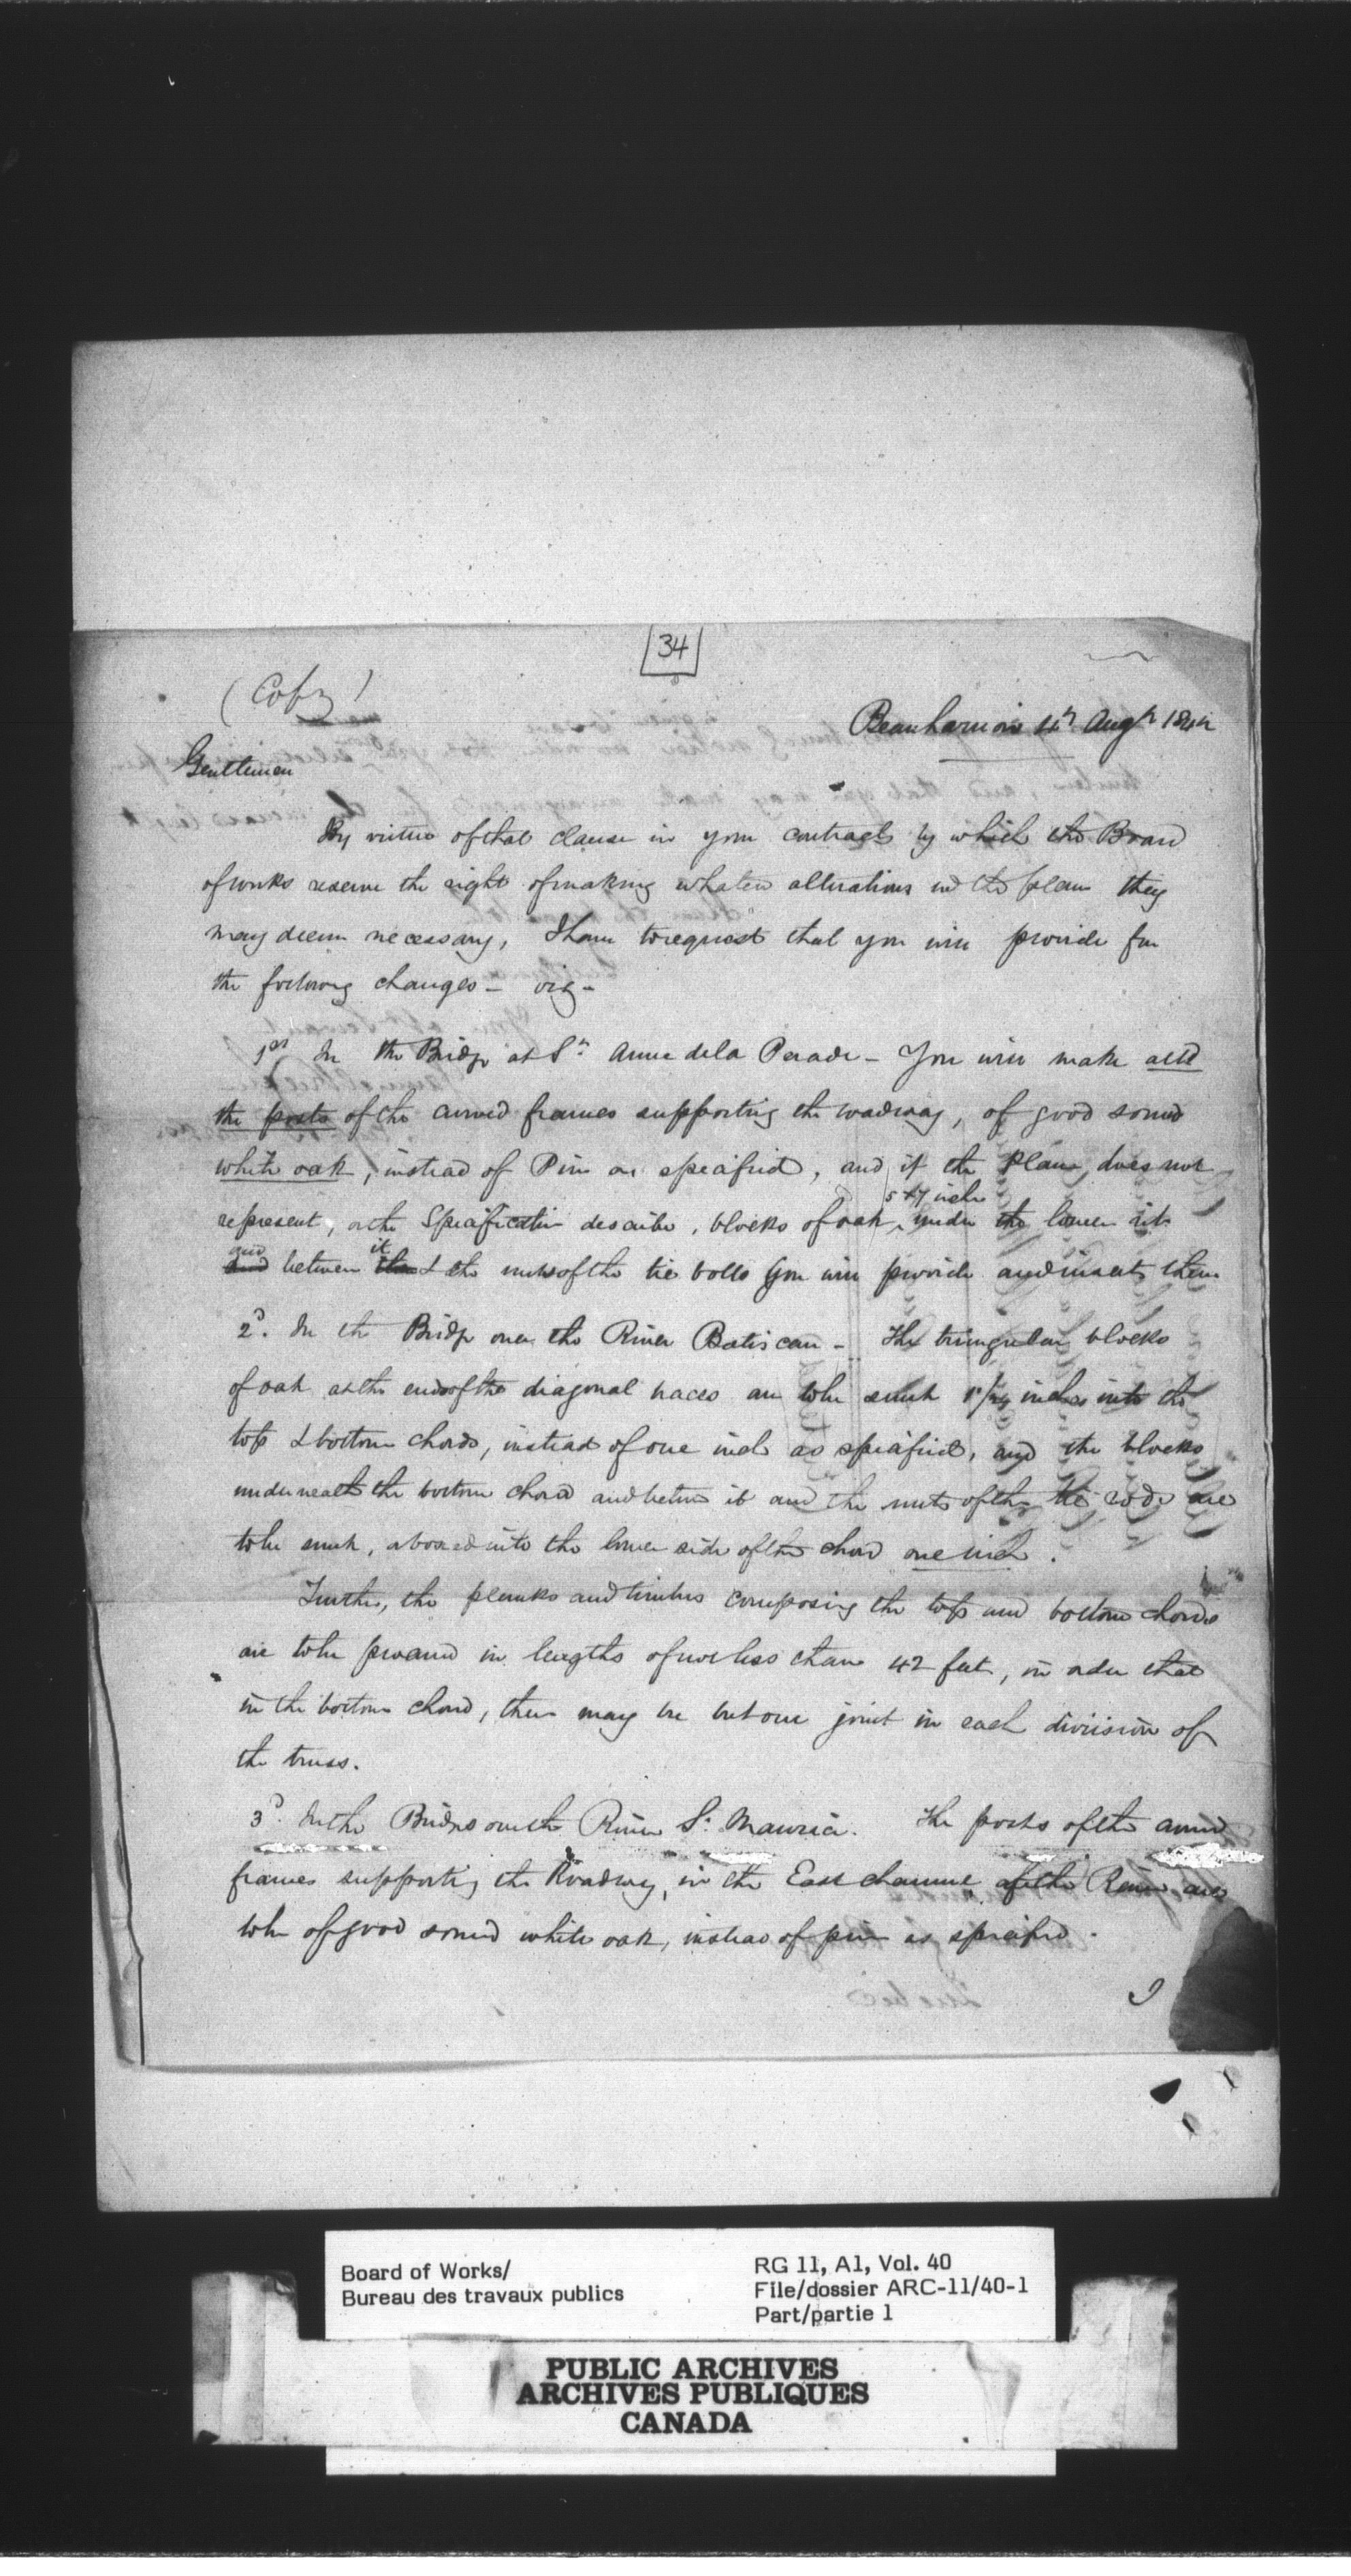 34
(Copy)
Beauharnois 4th Augt 1842
Gentlemen
By virtue of that clause in your contract by which the Board
of works reserve the right of making whatever alterations in the plan they
may deem necessary, I have to request that you will provide for
the following changes - viz -
1st In the Bridge at St Anne de la Perade - You will make all
the posts of the curved frames supporting the roadway, of good sound
white oak, instead of Pine as specified, and if the Plan does not
5 x 7 inches
represent, or the Specification describe, blocks of oak, under the lower rib
and it
and between the & the nuts of the tie bolts you will provide and insert them
2d. In the Bridge over the River Batiscan - The triangular blocks
of oak at the ends of the diagonal braces are to be sunk inches into the
top & bottom chords, instead of one inch as specified, and the blocks
underneath the bottom chord and between it and the nuts of the tie rods are
to be sunk, or boxed into the lower side of the chord one inch.
Further, the planks and timbers composing the top and bottom chords
are to be procured in lengths of not less than 42 feet, in order that
in the bottom chord, there may be but one joint in each division of
the truss.
3d. In the Bridges over the River St. Maurice. The posts of the curved
frames supporting the Roadway, in the East channel of the River are
to be of good sound white oak, instead of pine as specified.
I
Board of Works/
Bureau des travaux publics
RG 11, A1, Vol. 40
File/dossier ARC-11/40-1
Part/partie 1
PUBLIC ARCHIVES
ARCHIVES PUBLIQUES
CANADA